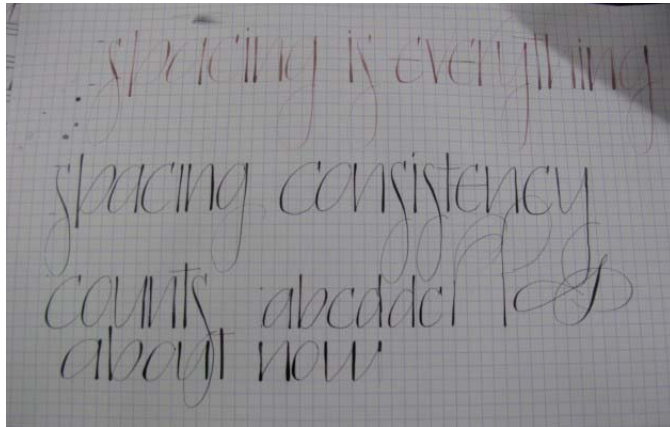 spacing is everything
spacing consistency
counts abcddc
about now